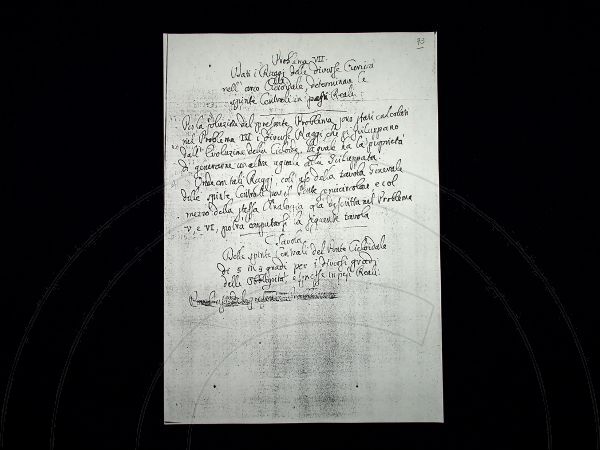 73
Problema VII.
Dati i Raggi delle diverse Cronici
nell'arco Cicloidale, determinar le
spinte Centrali in pesi Reali.
Per la soluzione del presente Problema sono stati calcolati
nel Problema IV i diversi Raggi che si sviluppano
dall'Evoluzione della Cicloide, la quale ha la proprietà
di generarne un'altra uguale alla Sviluppata.
Onde con tali Raggi, coll'uso della tavola Generale
delle spinte Centrali per il Ponte semicircolare e col
mezzo della stessa Analogia già descritta nel Problema
V, e VI, potrà computarsi la seguente tavola
Tavola
Delle spinte Centrali del Ponte Cicloidale
di 5 in 5 gradi per i diversi gradi
delle e in pesi Reali.